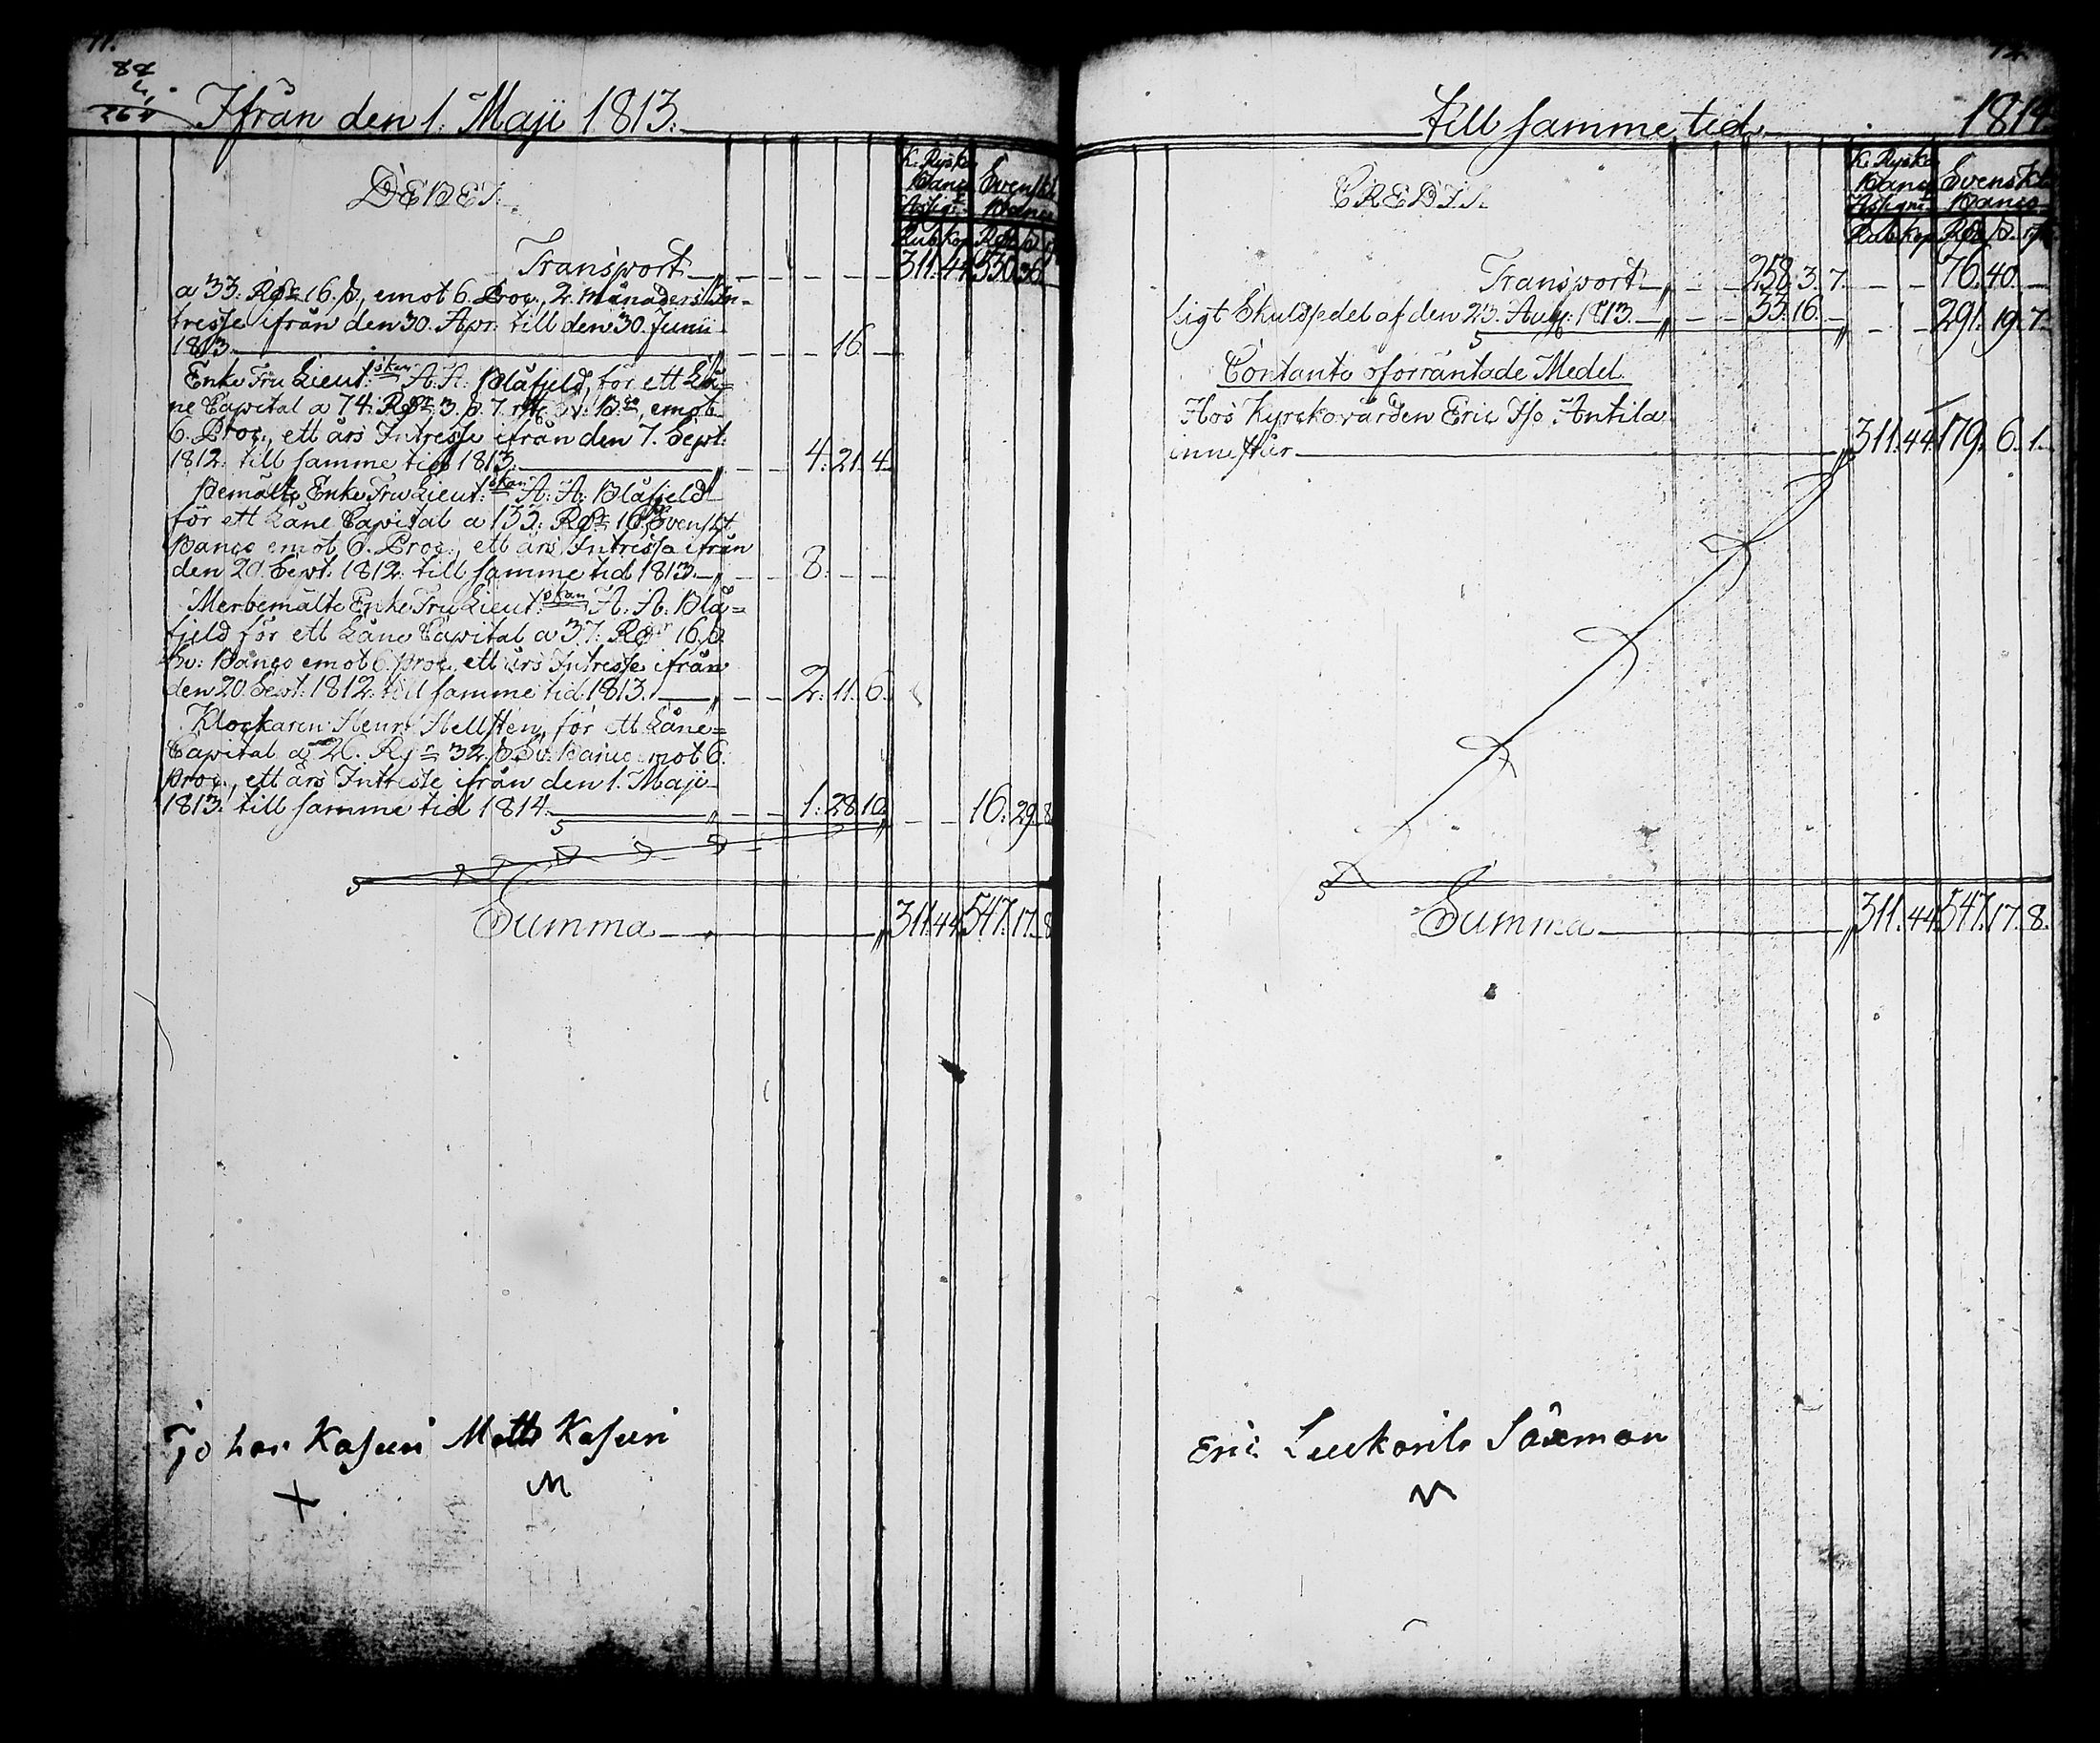 11.
Ifrån den 1. Maji 1813.
DEBET.
K. Ryska Banco Assign: Svenskt Banco
Rub Kop Rdr ß rst
Transport 311. 44. 530. 36.
a 33: Rdr 16. ß, emot 6. Proc., 2. månaders In-
tresse ifrån den 30. Apr. till den 30. Junii
1813. 16.
Enke Fru Lieut:skan A. A. Blåfjeld, för ett Lå=
ne Capital a 74. Rdr 3. ß. 7. rst. Sv: B:co, emot
6. Proc., ett års Intresse ifrån den 7. Sept:
1812. till samme tid 1813. 4. 21. 4.
Bemälte Enke Fru Lieut:skan A: A: Blåfjeld
för ett Låne Capital a 133: Rdr 16 ß Svenskt
Banco emot 6. Proc., ett års Intresse ifrån
den 20. Sept. 1812. till samme tid 1813. 8.
Merbemälte Enke Fru Lieut:skan A: A: Blå=
fjeld för ett Låne Capital a 37: Rdr 16 ß.
Sv: Banco emot 6. proc., ett års Intresse ifrån
den 20 Sept: 1812. till samme tid 1813. 2. 11. 6.
Klockaren Henr: Hellsten, för ett Låne=
Capital a 26. Rdr 32. ß Sv: Banco emot 6.
proc., ett års Intresse ifrån den 1. Maji
1813. till samme tid 1814. 1. 28. 10. 16. 29. 8.
Summa 311. 44. 547. 17. 8
Johan Kasuri Matts Kasuri
X M
12.
till samme tid 1814.
CREDIT.
K. Ryska Banco Assign: Svenskt Banco
Rub Kop Rdr ß. rst.
Transport 258. 3. 7. 76. 40.
ligt Skuldsedel af den 23. Aug: 1813. 33. 16. 291. 19. 7.
Contante oförräntade Medel.
Hos Kyrckovärden Eric Iso Antila
innestår 311. 44. 179. 6. 1.
Summa 311. 44. 547. 17. 8.
Eric Saxman